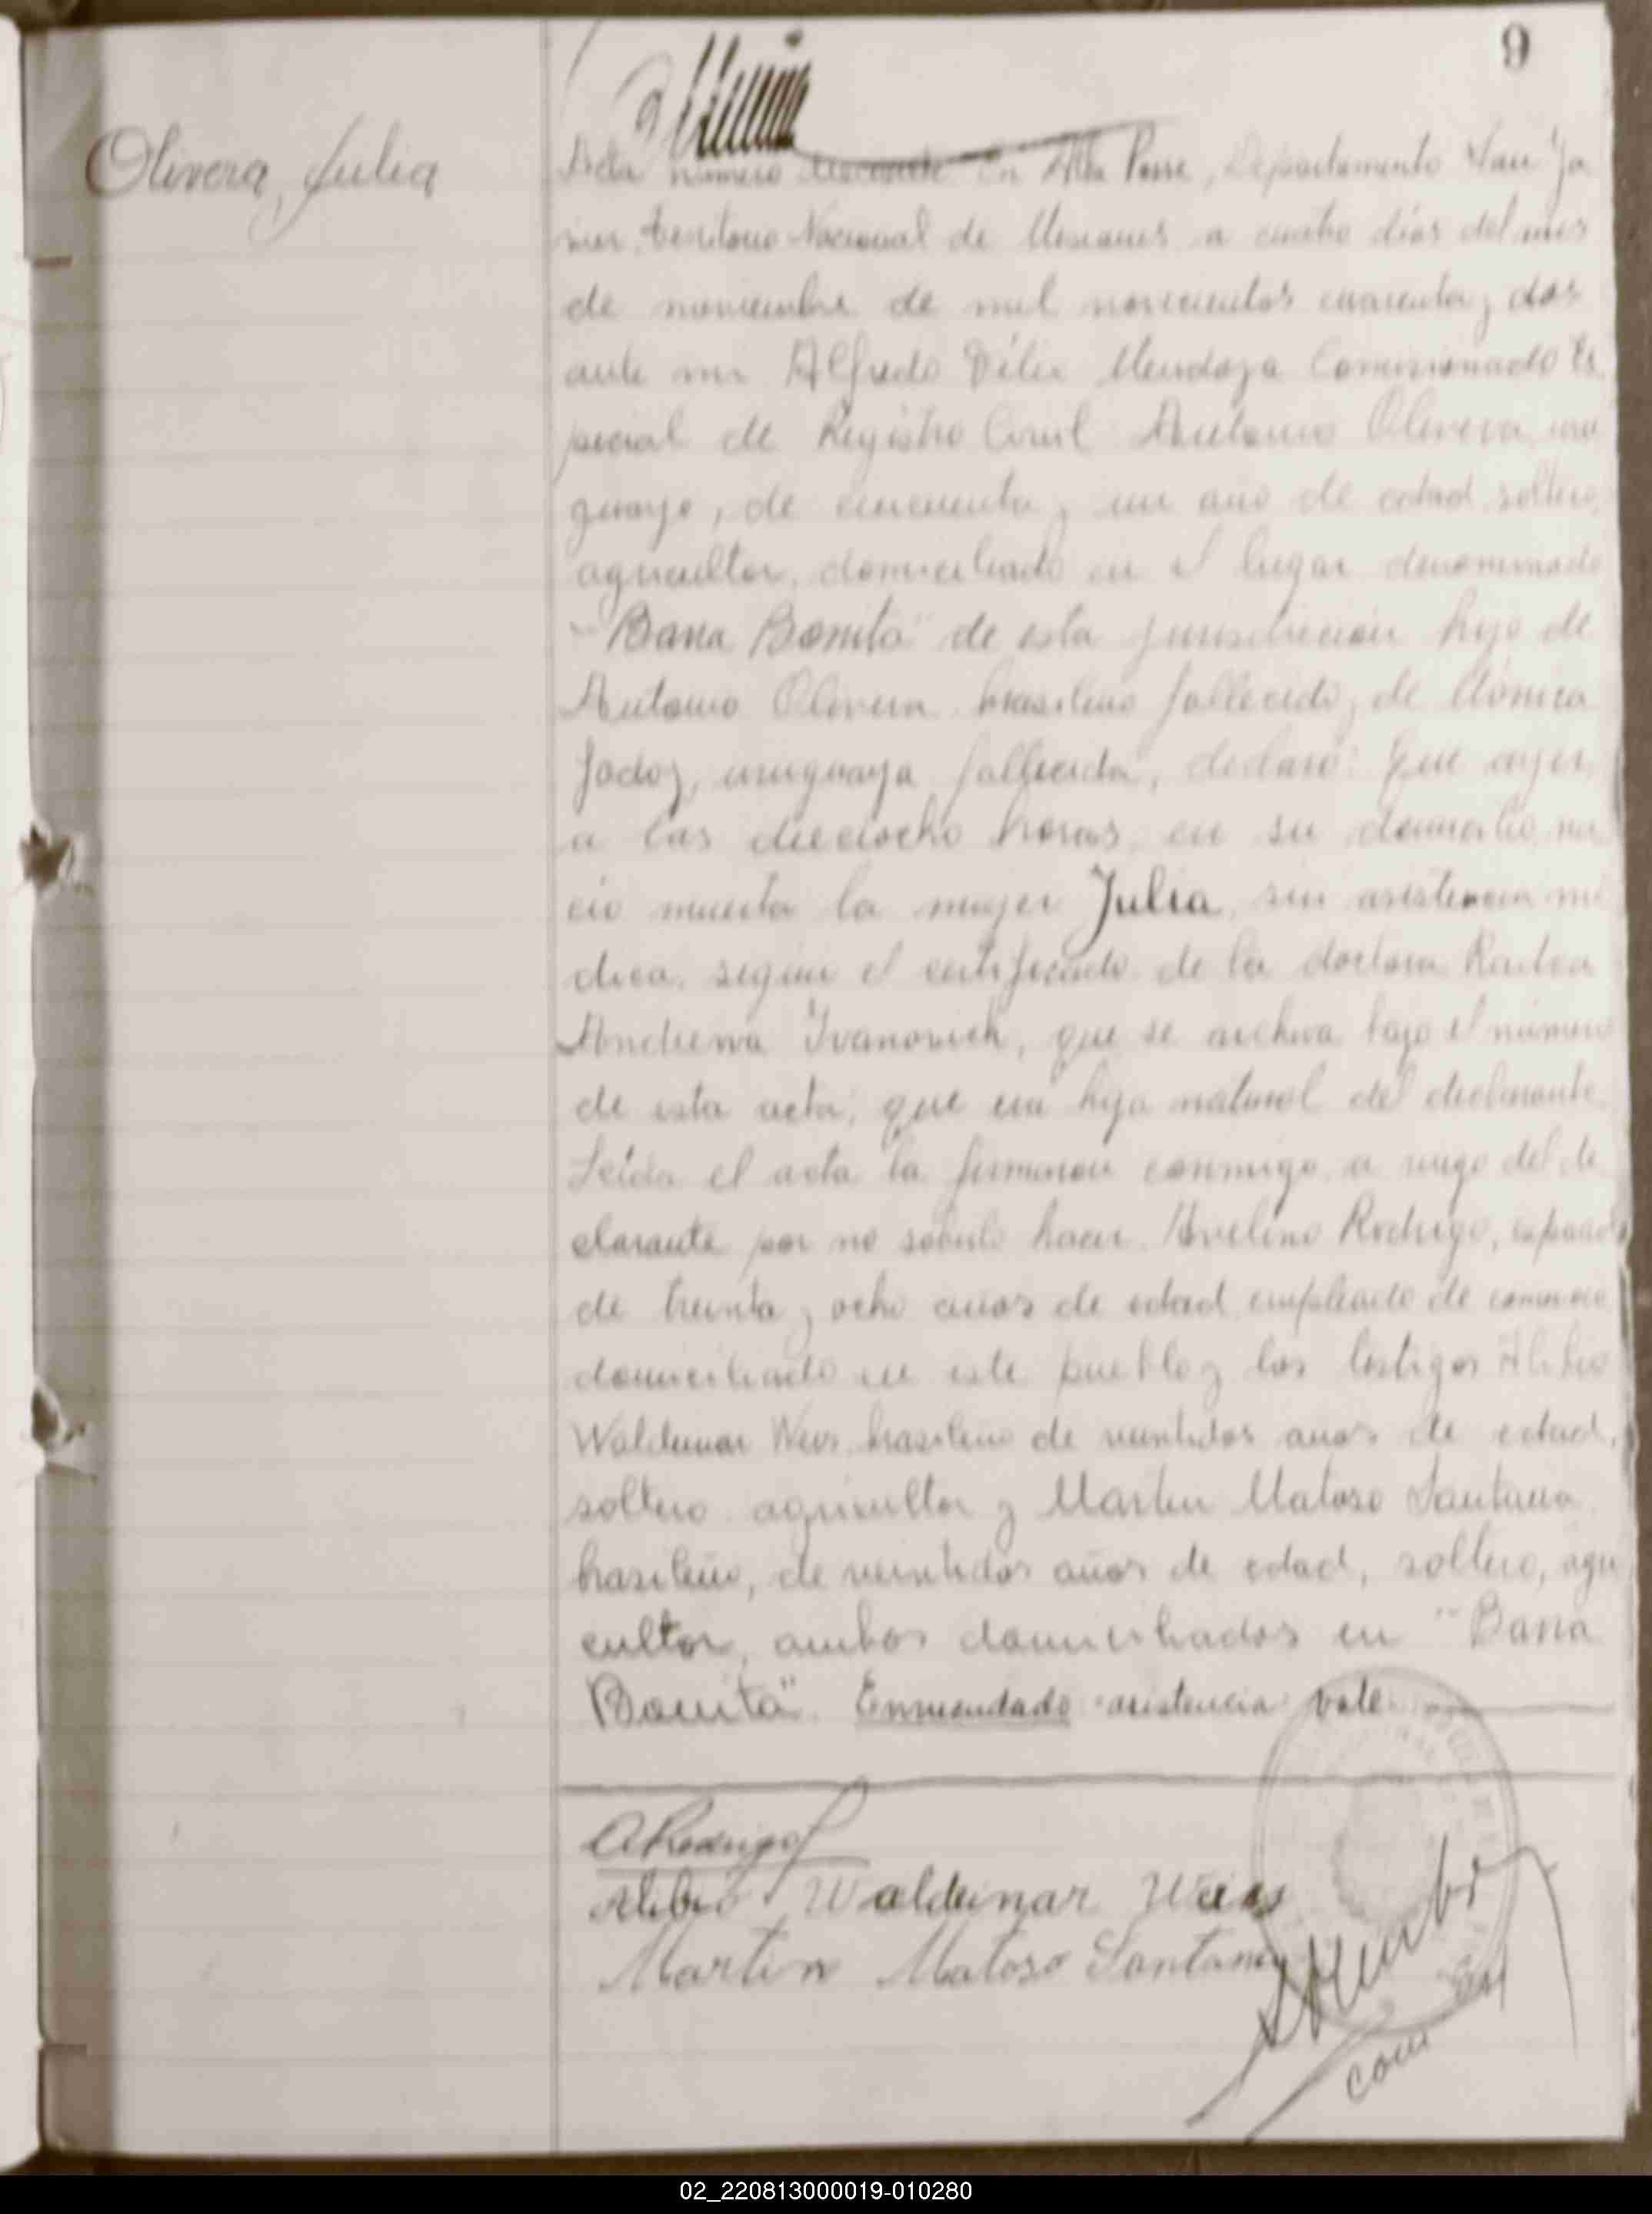 9
Olivera, Julia
Acta número en Alba Posse, Departamento San Ja
vier, Territorio Nacional de Misiones a cuatro días del mes
de noviembre de mil novecientos cuarenta y dos
ante mi Alfredo Mendoza Comisionado Es
pecial de Registro Civil Antonio Olivera, uru
guayo, de cincuenta y un año de edad, soltero,
agricultor, domiciliado en el lugar denominado
"Barra Bonita" de esta jurisdicción hijo de
Antonio Olivera brasileño fallecido y de
Godoy, uruguaya fallecida, declaró: Que ayer
a las dieciocho horas, en su domicilio, na
ció muerta la mujer Julia, sin asistencia mé
dica, según el certificado de la doctora
Ivanovich, que se archiva bajo el número
de esta acta; que era hija natural del declarante.
Leída el acta la firmaron conmigo, a ruego del de
clarante por no saberlo hacer Avelino Rodrigo, español
de treinta y ocho años de edad empleado de comercio
domiciliado en este pueblo y los testigos Alibio
Waldemar Weis brasileño de veintidos años de edad,
soltero agricultor y Martin Matoso Santana
brasileño, de veintidos años de edad, soltero, agri
cultor, ambos domiciliados en "Barra
Bonita". Enmendado asistencia vale
ARodrigo
Alibio Waldemar Weis
Martin Matoso Santana
02_220813000019-010280